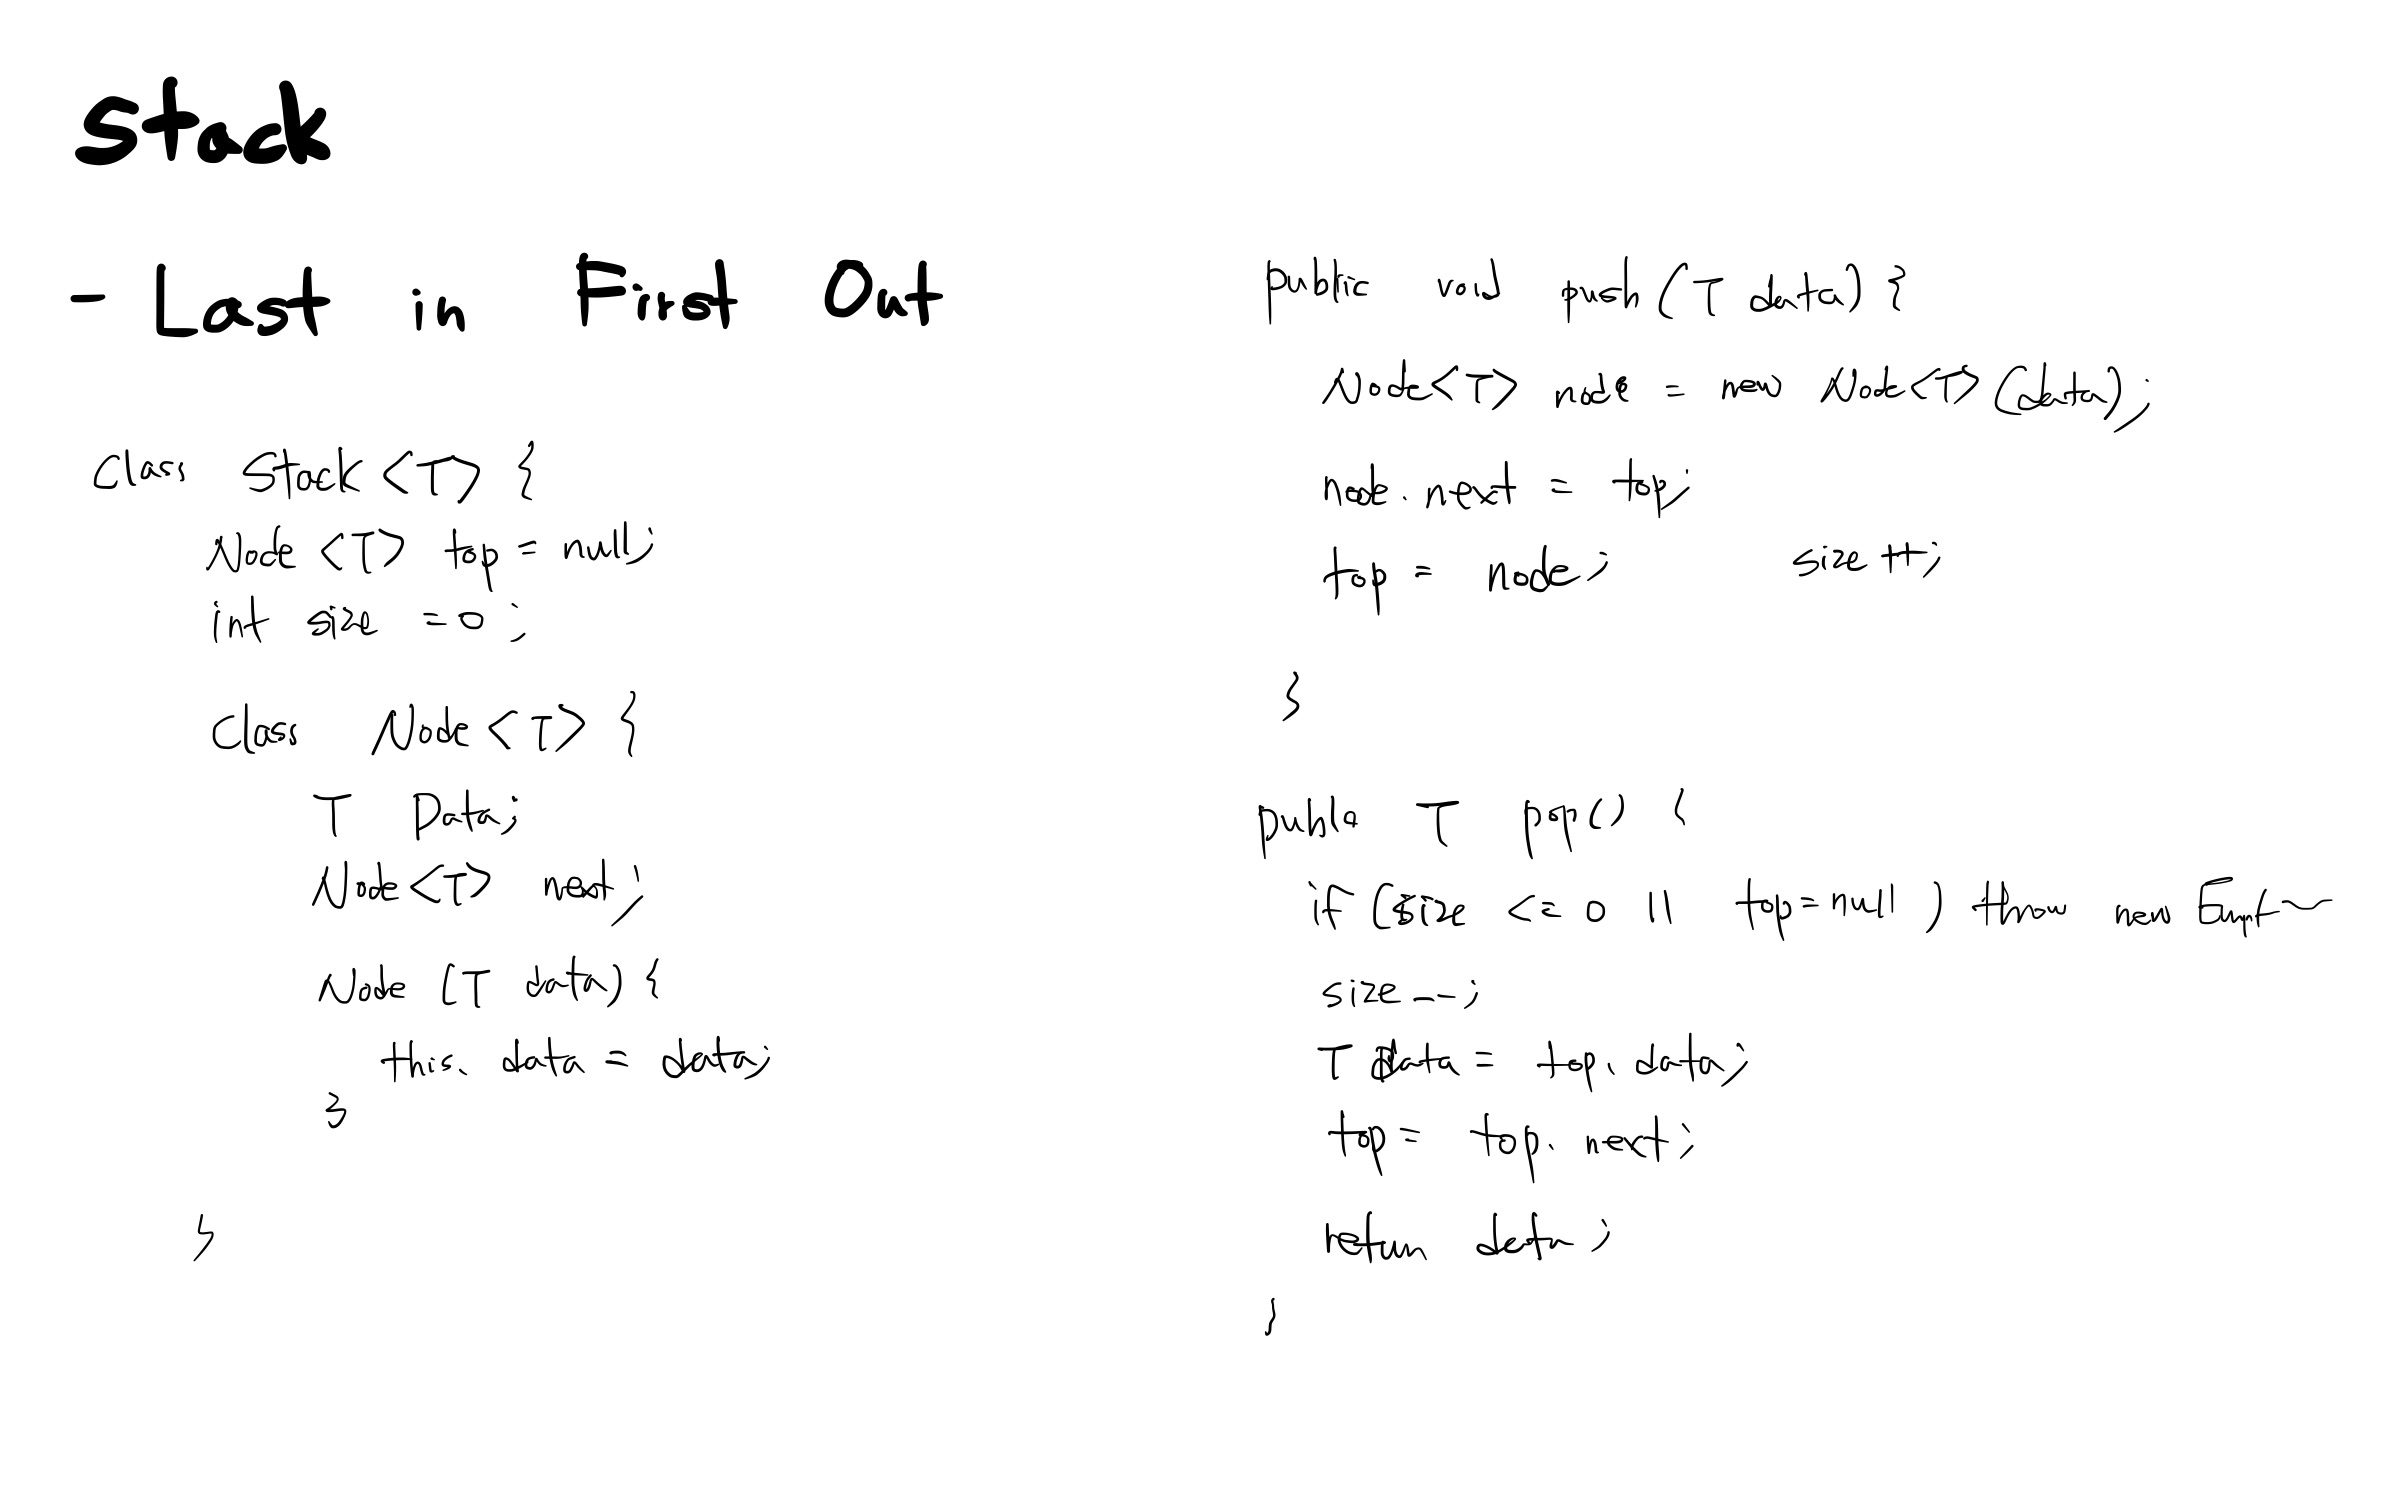 Stack
- Last in First Out
class Stack <T> {
Node <T> top = null;
int size = 0;
class Node <T> {
T Data;
Node<T> next;
Node (T data) {
this. data = data;
}
}
public void push (T data) {
Node<T> node = new Node<T> (data);
node. next = top;
top = node; size ++;
}
public T pop() {
if (size <= 0 || top = null ) throw new Empt~
size --;
T data = top. data;
top = top. next;
return data;
}